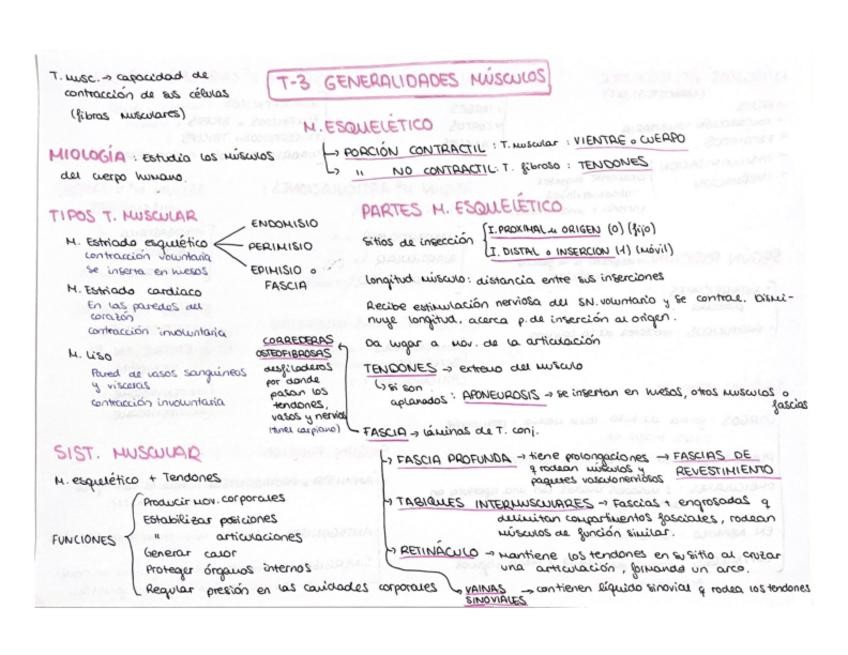 T. Musc. → capacidad de
contracción de sus células
(fibras musculares)
T-3 GENERALIDADES MÚSCULOS
MIOLOGÍA : Estudia los músculos
del cuerpo humano.
M. ESQUELÉTICO
→ PORCIÓN CONTRACTIL : T. muscular : VIENTRE o CUERPO
→ " NO CONTRACTIL: T. fibroso : TENDONES
TIPOS T. MUSCULAR
M. Estriado esquelético
contracción voluntaria
se inserta en huesos
ENDOMISIO
PERIMISIO
EPIMISIO o
FASCIA
M. Estriado cardiaco
En las paredes del
corazón
contracción involuntaria
M. Liso
Pared de vasos sanguíneos
y vísceras
contracción involuntaria
PARTES M. ESQUELÉTICO
sitios de insección
I. PROXIMAL u ORIGEN (O) (fijo)
I. DISTAL o INSERCION (I) (móvil)
longitud músculo : distancia entre sus inserciones
Recibe estimulación nerviosa del SN. voluntario y se contrae. Dismi-
nuye longitud, acerca p. de inserción al origen.
Da lugar a mov. de la articulación
TENDONES → extremo del músculo
↳ si son
aplanados : APONEUROSIS → se insertan en huesos, otros musculos o
fascias
CORREDERAS
OSTEOFIBROSAS
desfiladeros
por donde
pasan los
tendones,
vasos y nervios
(túnel carpiano)
FASCIA → láminas de T. conj.
→ FASCIA PROFUNDA → tiene prolongaciones → FASCIAS DE
q rodean músculos y REVESTIMIENTO
paquetes vasculonerviosos
→ TABIQUES INTERMUSCULARES → Fascias + engrosadas q
delimitan compartimentos fasciales, rodean
músculos de función similar.
→ RETINÁCULO → mantiene los tendones en su sitio al cruzar
una articulación, formando un arco.
→ VAINAS → contienen líquido sinovial q rodea los tendones
SINOVIALES
SIST. MUSCULAR
M. esquelético + Tendones
FUNCIONES
Producir mov. corporales
Estabilizar posiciones
" articulaciones
Generar calor
Proteger órganos internos
Regular presión en las cavidades corporales